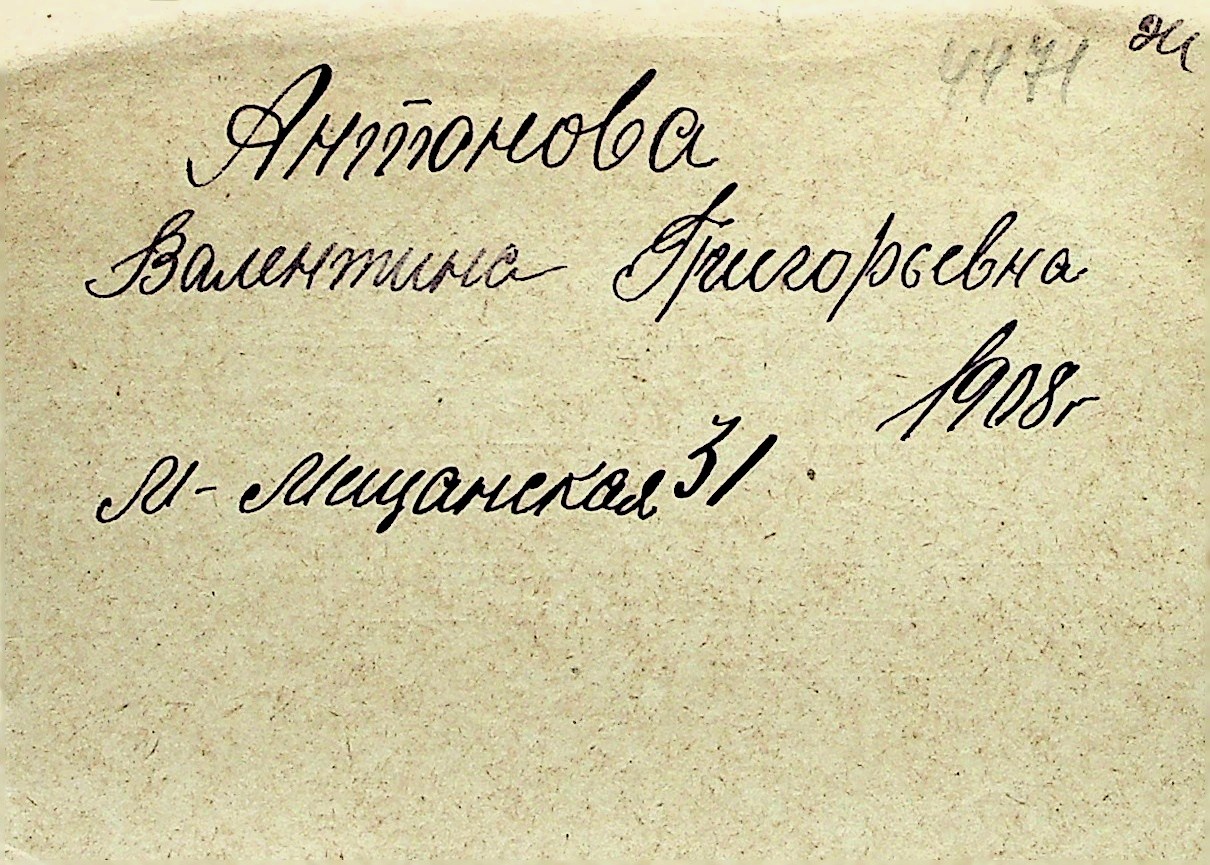 4471 Ж
Антонова
Валентина Григорьевна
1908г
М-Мещанская 31